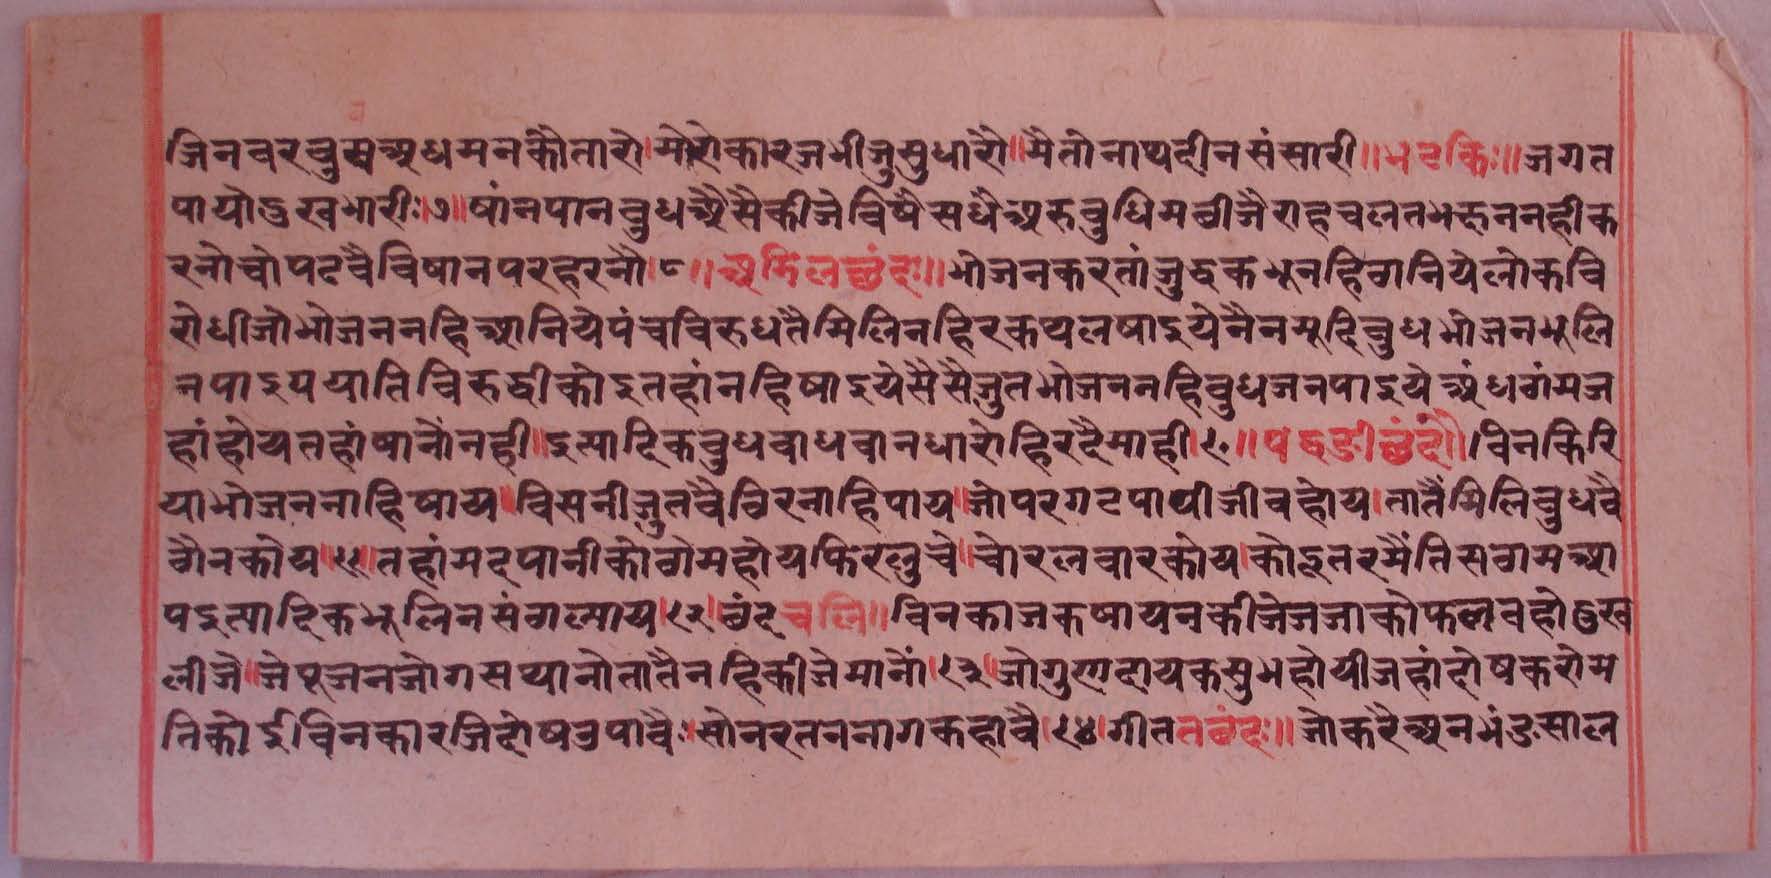 जिनवरवुमअधमनकौतारो।मोरोकारजभीजुसुधारौ॥मैतोनाथदीनसंसारी॥भटकिः॥जगत
पायोदुखभारीः।७॥षांनपानवुधअैसैकीजेविषैसधैअरुवुधिमवीजैराहचलतभक्षननहीक
रनोचोपटवैविषानपरहरनौ।८॥अमिलछंदः॥भोजनकरतांजुद्धकभूनहिठानियेलोकवि
रोधीजोभोजननहिआनियेपंचविरुधतैमिलिनहिरकथलषाइयेनैनमूदिवुधभोजनभूलि
नपाइपयातिविरुद्धीकोइतहांनहिषाइयेसैसैजुतभोजननहिवुधजनपाइयेअंधठांमज
हांहोयतहांषानौंनही॥इत्यादिकवुधवाधवानधारोहिरदैमाही।९॥पद्धडीछंदौ।विनकिरि
याभोजननाहिषाय॥विसनीजुतवैठिरनाहिपाय॥जोपरगटपापीजीवहोय।तातैंमिलिवुधवै
ठैनकोय॥११॥तहांमदपानीकोठामहोयफिरलुचे॥चोरलवारकोय।कोऊतरमैंतिसठामआ
पइत्यादिकभूलिनसंगल्याय।१२।छंदचलि॥विनकाजकषायनकीजेजजाकोफलवहोदुख
लीजे॥जेपूजनजोगसथानोतातैनहिकीजेमानों।१३॥जोगुणदायकसुभहोयीजहांदोषकरोम
तिकोईविनकारजिदोषउपावैः।सोनरतननागकहावै।१४।गीततछंदः॥जोकरैअनभंडसाल